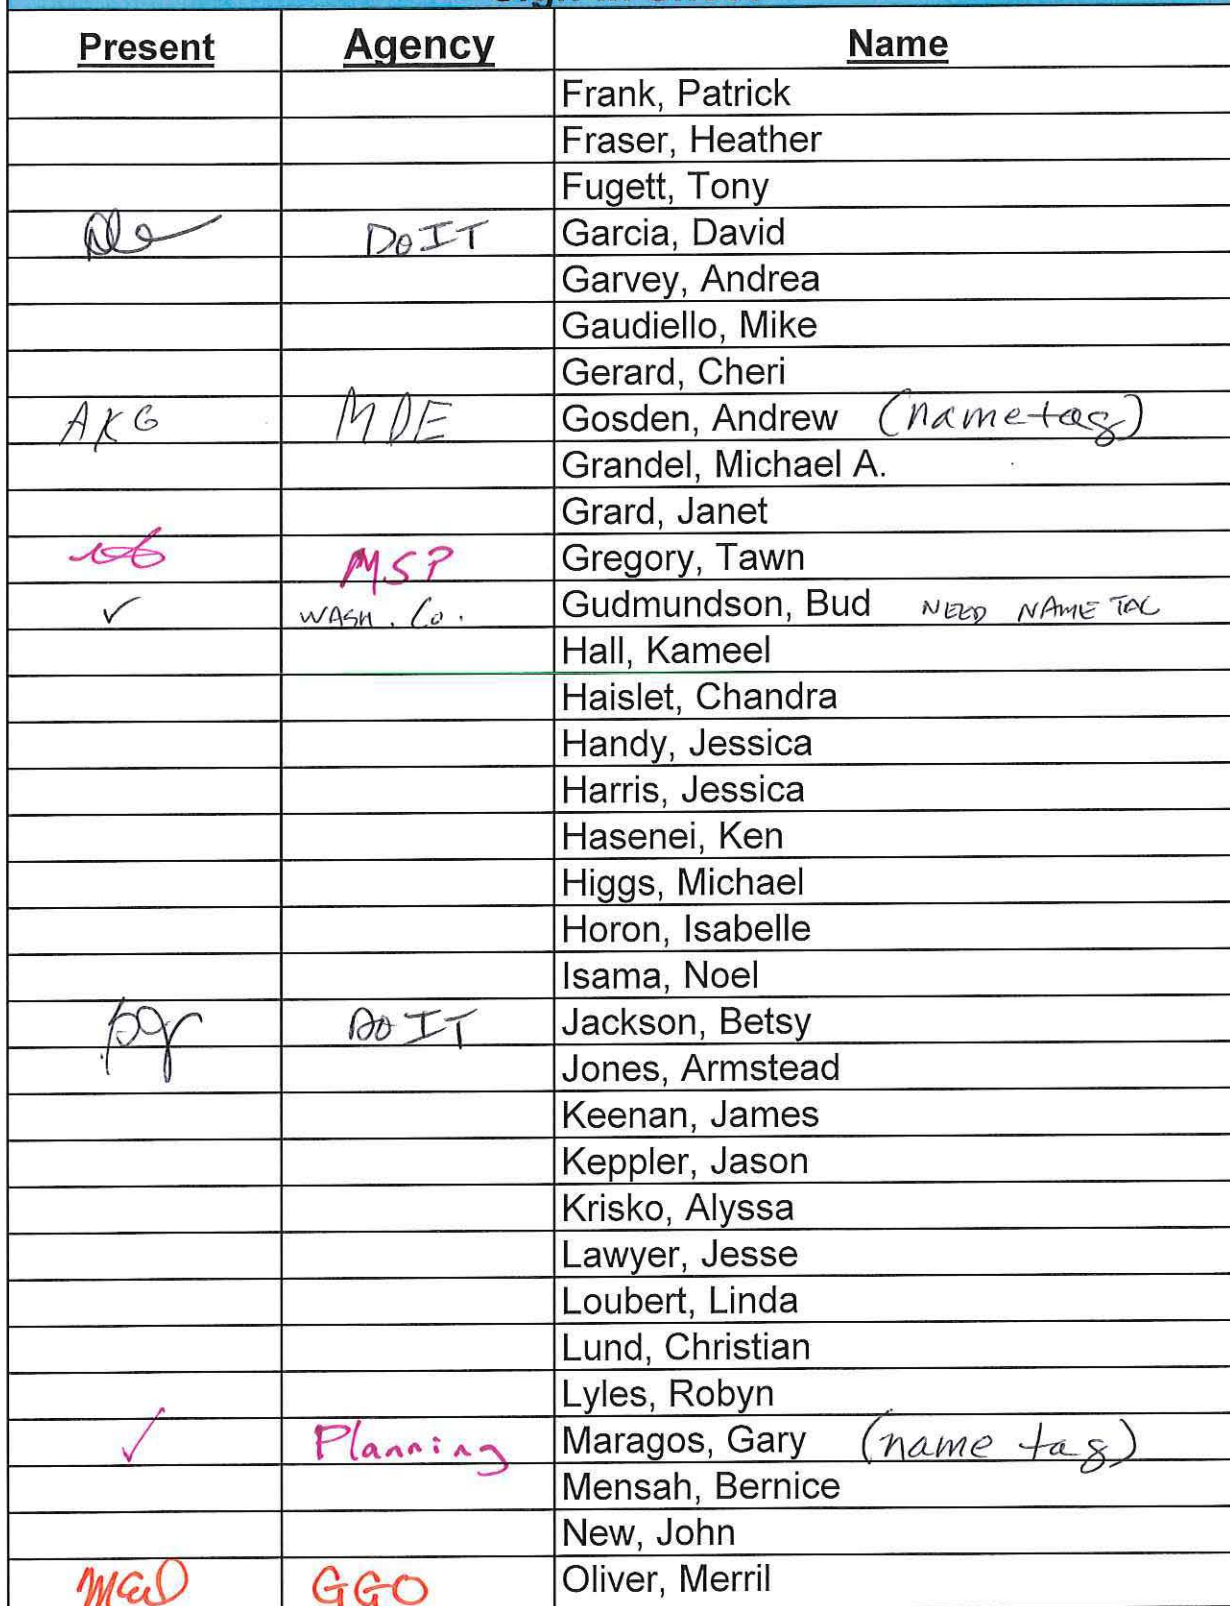 Present Agency Name
Frank, Patrick
Fraser, Heather
Fugett, Tony
DoIT Garcia, David
Garvey, Andrea
Gaudiello, Mike
Gerard, Cheri
AKG MDE Gosden, Andrew (name tag)
Grandel, Michael A.
Grard, Janet
MSP Gregory, Tawn
✓ WASH. Co. Gudmundson, Bud NEED NAME TAG
Hall, Kameel
Haislet, Chandra
Handy, Jessica
Harris, Jessica
Hasenei, Ken
Higgs, Michael
Horon, Isabelle
Isama, Noel
DoIT Jackson, Betsy
Jones, Armstead
Keenan, James
Keppler, Jason
Krisko, Alyssa
Lawyer, Jesse
Loubert, Linda
Lund, Christian
Lyles, Robyn
✓ Planning Maragos, Gary (name tag)
Mensah, Bernice
New, John
GGO Oliver, Merril